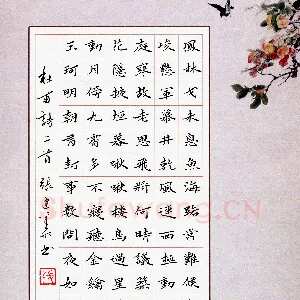 鳳林戈未息魚海路常難候
峻懸軍幕井乾風連西極動
庭寒故老思飛將何時議築
花隱掖垣暮啾啾棲鳥過星
動月傍九霄多不寢聽金鑰
玉珂明朝有封事數問夜如
杜甫詩二首 張建 書
Shufawang.CN